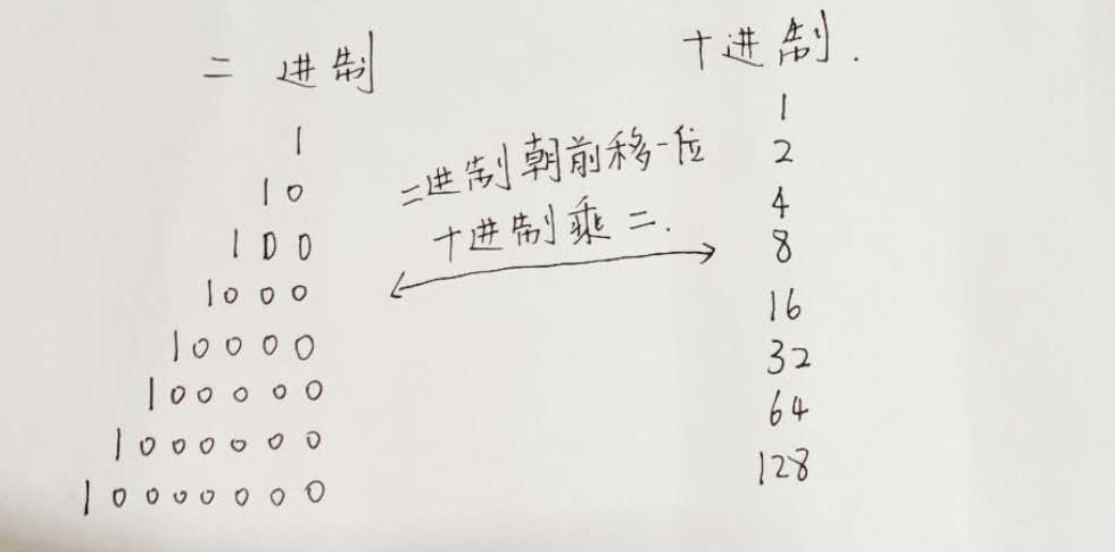 二 进制
1
10
100
1000
10000
100000
1000000
10000000
二进制朝前移一位
十进制乘二.
十进制.
1
2
4
8
16
32
64
128